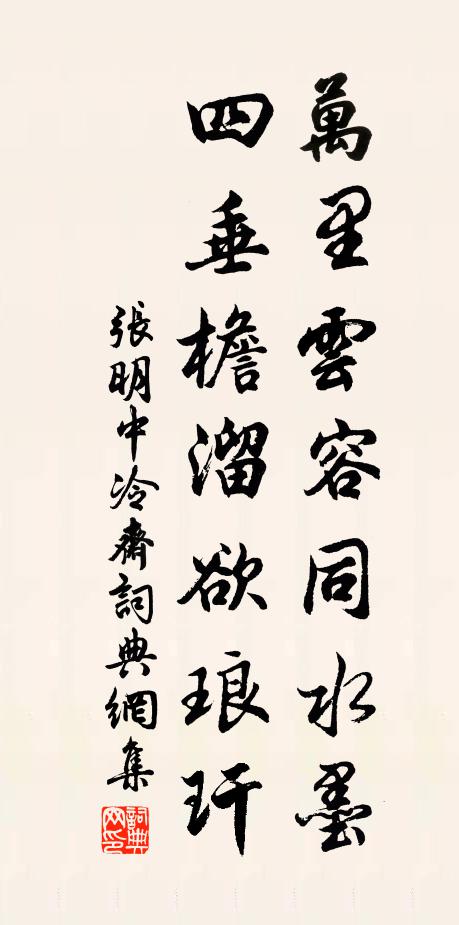 萬里雲容同水墨
四垂檐溜欲琅玕
張明中冷齋詞典網集
詞典網印